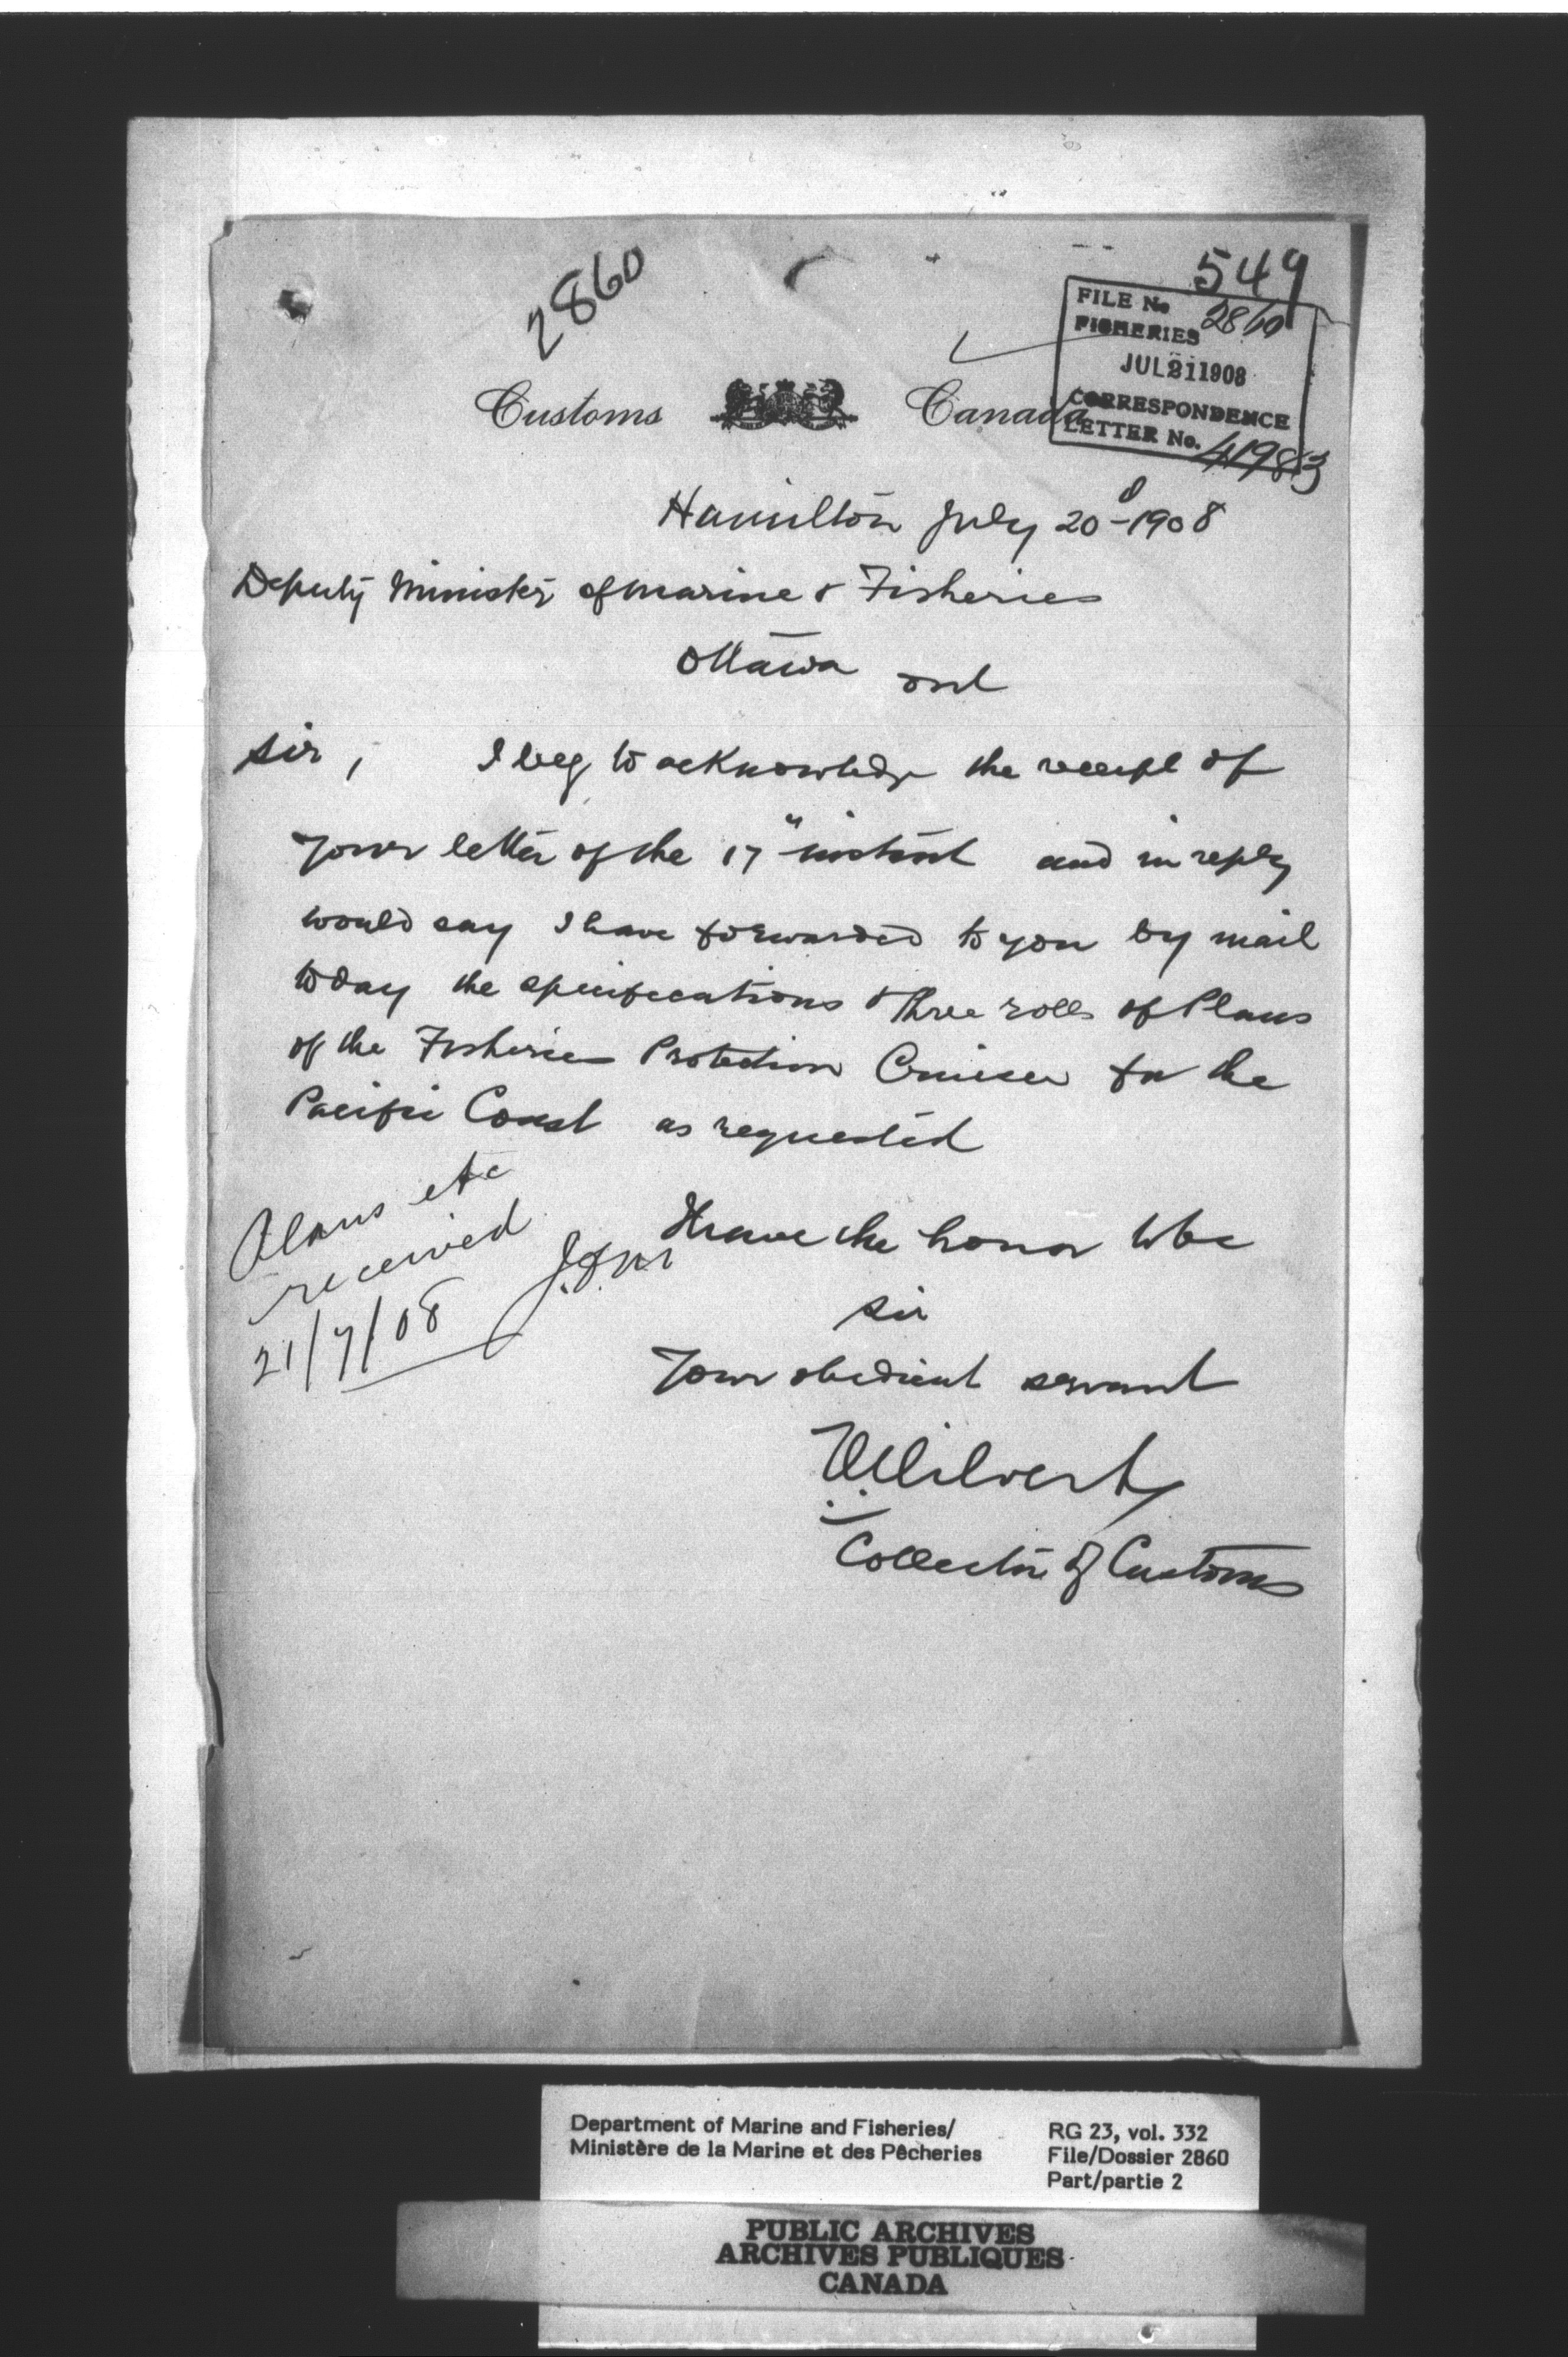 2860
549
FILE No 2860
FISHERIES
JUL 21 1908
CORRESPONDENCE
LETTER No. 41983
Customs Canada
Hamilton July 20 - 1908
Deputy Minister of Marine & Fisheries
Ottawa Ont
Sir, I beg to acknowledge the receipt of
your letter of the 17" instant and in reply
would say I have forwarded to you by mail
today the specifications & three rolls of Plans
of the Fisheries Protection Cruiser for the
Pacific Coast as requested
Plans etc
received
21/7/08
I have the honor to be
Sir
Your obedient servant
Collector of Customs
Department of Marine and Fisheries/
Ministère de la Marine et des Pêcheries
RG 23, vol. 332
File/Dossier 2860
Part/partie 2
PUBLIC ARCHIVES
ARCHIVES PUBLIQUES
CANADA